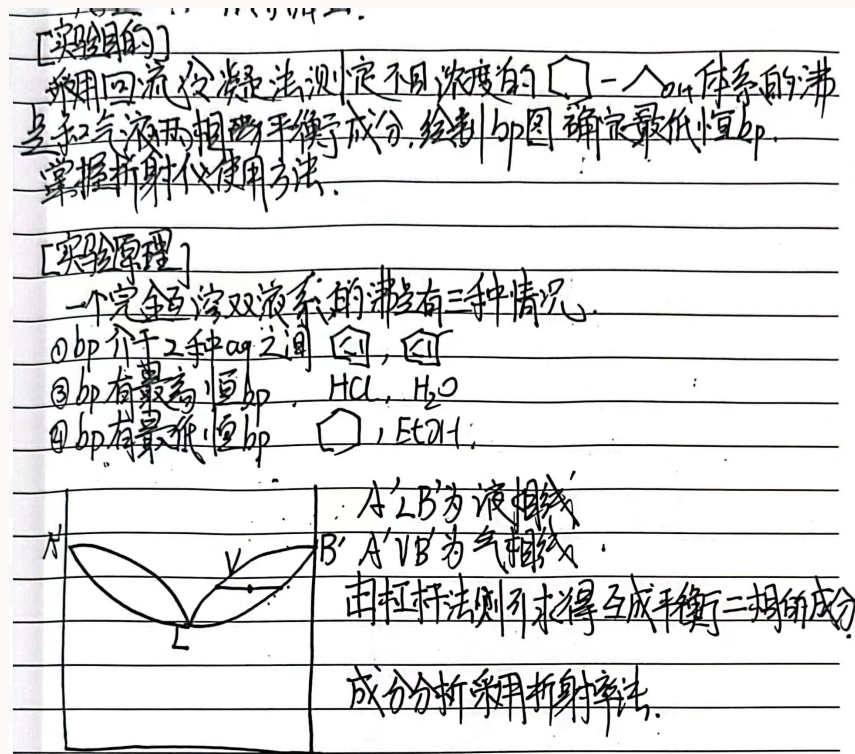 [实验目的]
采用回流冷凝法测定不同浓度的 - OH体系的沸
点和气液两相平衡成分,绘制bp图 确定最低恒bp.
掌握折射仪使用方法.
[实验原理]
一个完全互溶双液系的沸点有三种情况.
①bp介于2种aq之间 ,
③bp有最高恒bp. HCl, H2O
④bp有最低恒bp , EtOH.
A'LB'为液相线
A' V B' A'VB'为气相线.
由杠杆法则可求得互成平衡二相的成分.
L
成分分析采用折射率法.